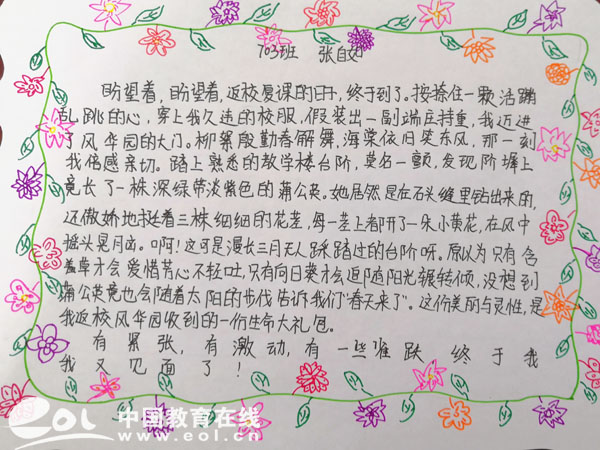 703班 张自
盼望着，盼望着，返校复课的日子，终于到了。按捺住一颗活蹦
乱跳的心，穿上我久违的校服，假装出一副端庄持重，我迈进
了风华园的大门。柳絮殷勤春解舞，海棠依旧笑东风，那一刻
我倍感亲切。踏上熟悉的教学楼台阶，莫名一颤，发现阶墀上
竟长了一株深绿带淡紫色的蒲公英。她居然是在石头缝里钻出来的，
还傲娇地挺着三株细细的花茎，每一茎上都开了一朵小黄花，在风中
摇头晃脑。啊！这可是漫长三月无人踩踏过的台阶呀。原以为只有含
羞草才会爱惜芳心不轻吐，只有向日葵才会追随阳光辗转倾，没想到
蒲公英竟也会随着太阳的步伐告诉我们“春天来了”。这份美丽与灵性，是
我返校风华园收到的一份生命大礼包。
有紧张，有激动，有一些雀跃 终于我
我又见面了！
eol 中国教育在线
www.eol.cn